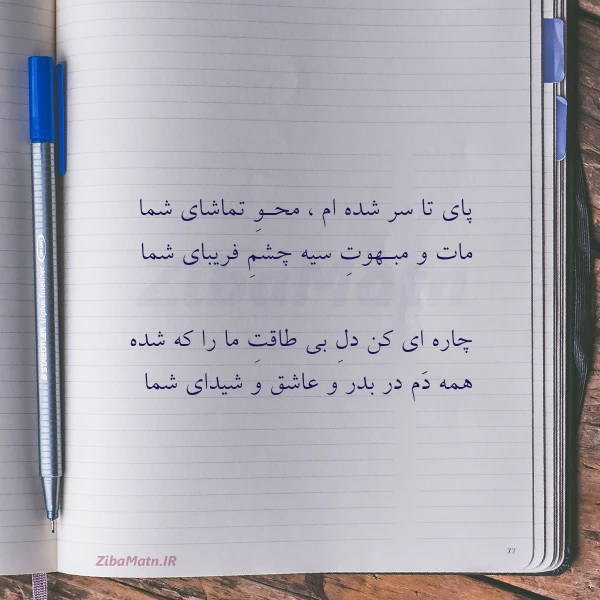 پای تا سر شده ام ، محــوِ تماشای شما
مات و مبــهوتِ سیه چشمِ فریبای شما
چاره ای کن دلِ بی طاقتِ ما را که شده
همه دَم در بدر و عاشق و شیدای شما
77
ZibaMatn.IR